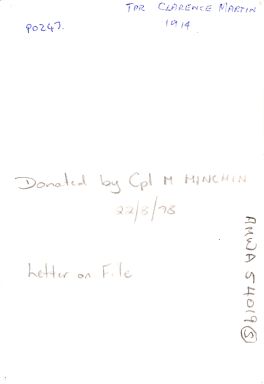 TPR CLARENCE MARTIN
1914
P0247.
Donated by Cpl M MINCHIN
22/8/78
Letter on File
AMWA 54019 (S)